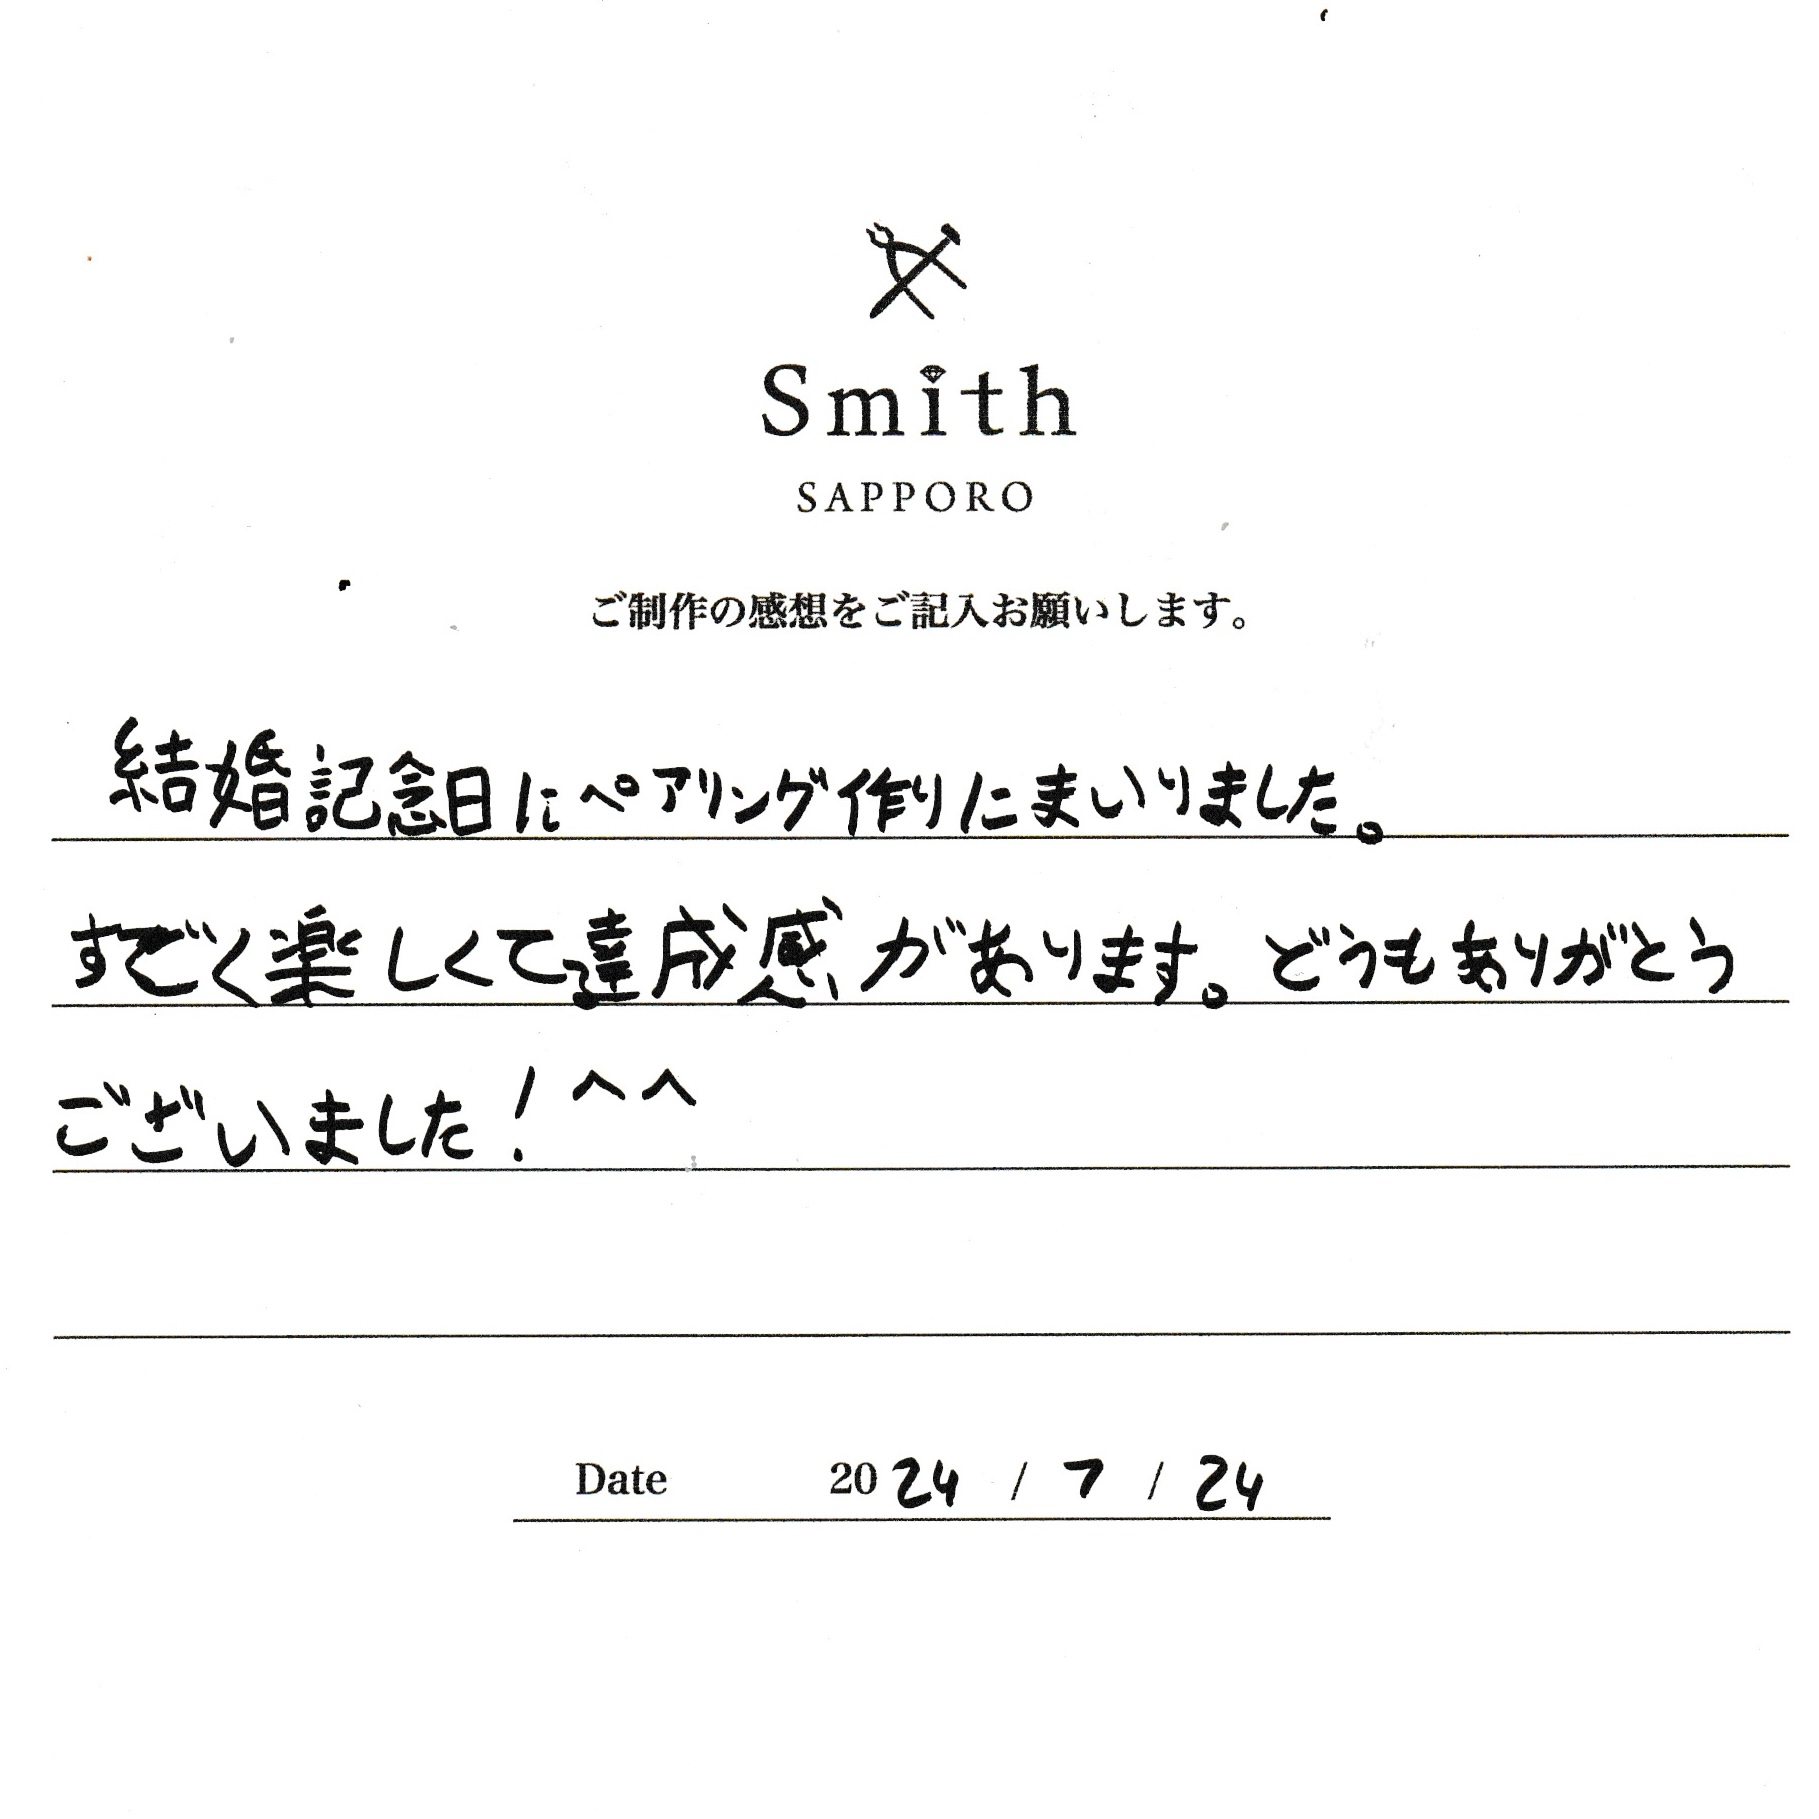 Smith
SAPPORO
ご制作の感想をご記入お願いします。
結婚記念日にペアリング作りにまいりました。
すごく楽しくて達成感があります。どうもありがとう
ございました!^^
Date 2024 / 7 / 24